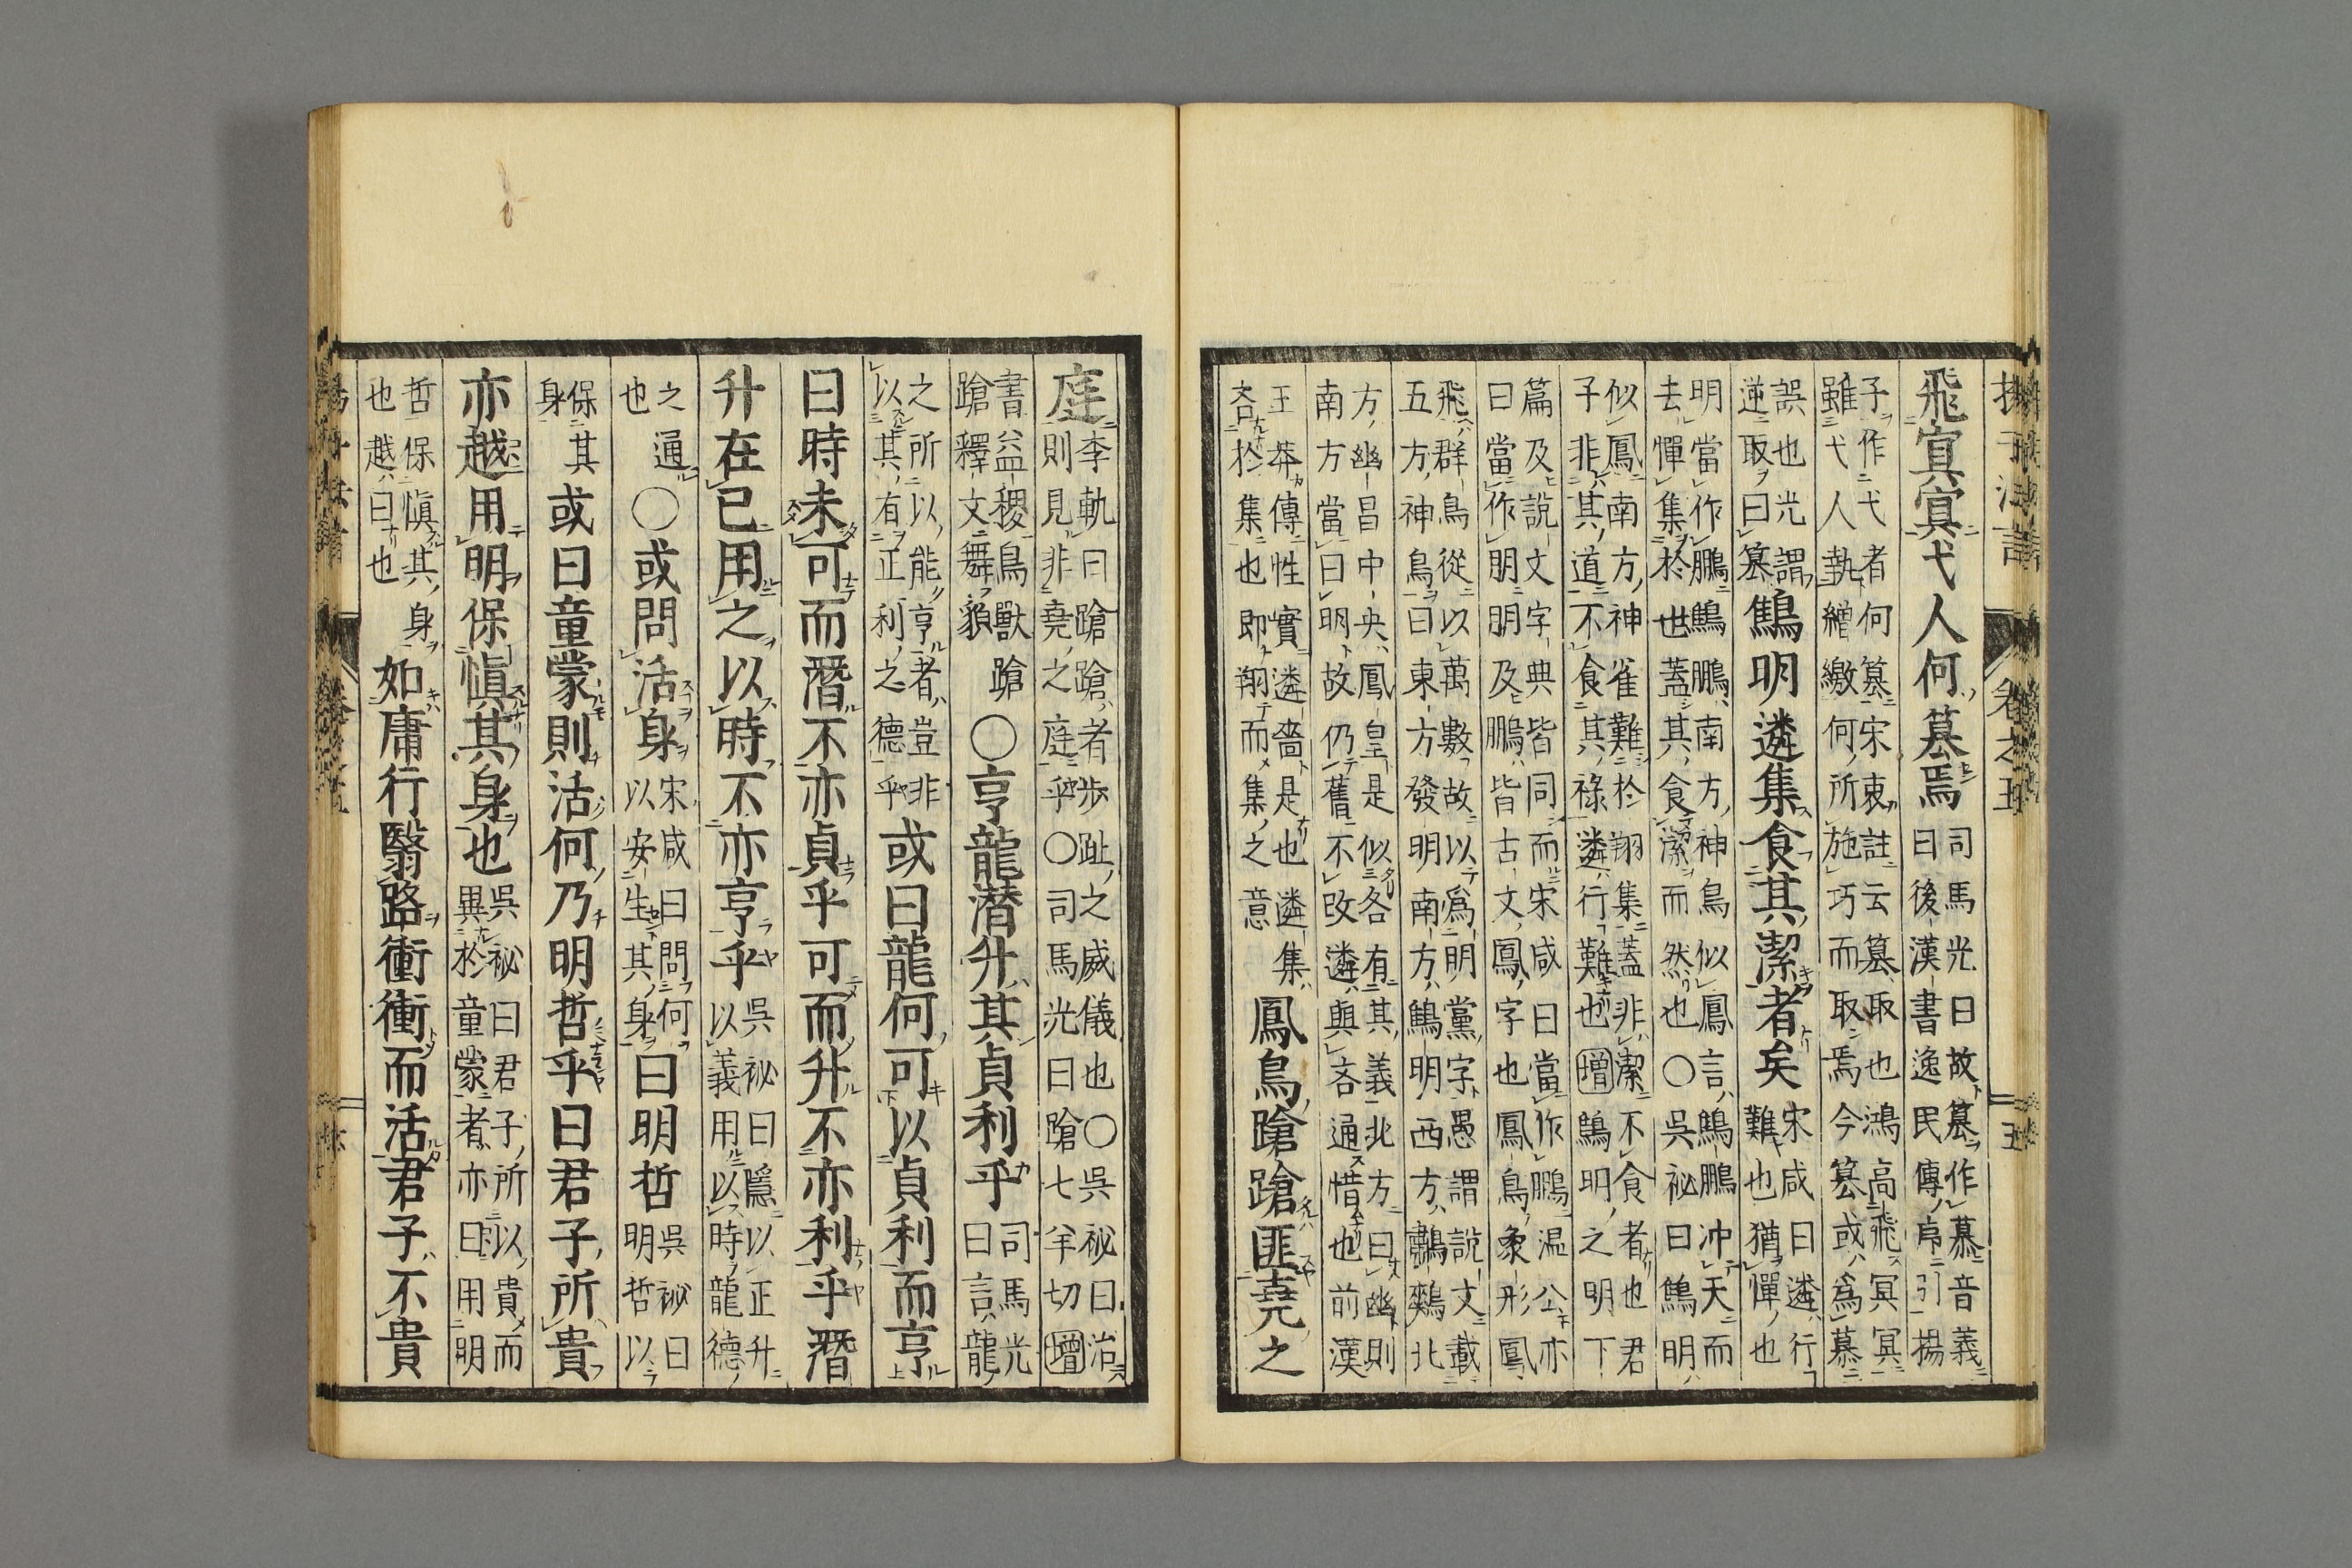 飛冥冥弋人何篡焉 司馬光曰故篡作慕音義曰後漢書逸民傳序引揚
子作弋者何篡宋衷註云篡取也鴻高飛冥冥雖弋人執繒繳何所施巧而取焉今篡或爲慕
誤也光謂逆取曰篡 鷦明遴集食其潔者矣 宋咸曰遴行難也猶憚也
明當作鵬鷦鵬南方神鳥似鳳言鷦鵬冲天而去憚集於世蓋其食潔而然也〇吳祕曰鷦明
似鳳南方神雀難於翔集蓋非潔不食者也君子非其道不食其祿遴行難也增鷦明之明下
篇及說文字典皆同而宋咸曰當作鵬溫公亦曰當作朋朋及鵬皆古文鳳字也鳳鳥象形鳳
飛群鳥從以萬數故以爲明黨字愚謂說文載五方神鳥曰東方發明南方鷦明西方鷫鷞北
方幽昌中央鳳皇是似各有其義北方曰幽則南方當曰明故仍舊不改遴與吝通惜也前漢
王莽傳性實遴嗇是也遴集吝於集也即翔而集之意 鳳鳥蹌蹌匪堯之
庭 李軌曰蹌蹌者步趾之威儀也〇吳祕曰治則見非堯之庭乎〇司馬光曰蹌七羊切增
書益稷鳥獸蹌蹌釋文舞貌 〇亨龍潜升其貞利乎 司馬光曰言龍
之所以能亨者豈非以其有正利之德乎 或曰龍何可以貞利而亨
曰時未可而潛不亦貞乎可而升不亦利乎潛
升在已用之以時不亦亨乎 吳祕曰隱以正升以義用以時龍德
之通也 〇或問活身 宋咸曰問何以安生其身 曰明哲 吳祕曰明哲以
保其身 或曰童蒙則活何乃明哲乎曰君子所貴
亦越用明保愼其身也 吳祕曰君子所以貴而異於童蒙者亦曰用明
哲保愼其身也越曰也 如庸行翳路衝衝而活君子不貴